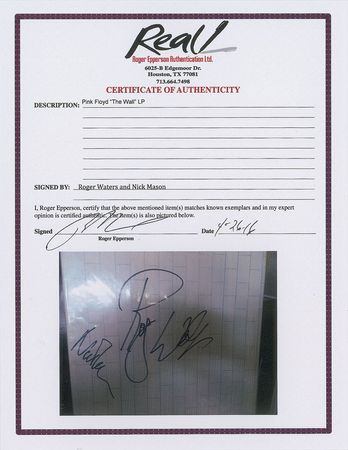 Real!
Roger Epperson Authentication Ltd.
6025-B Edgemoor Dr.
Houston, TX 77081
713.664.7498
CERTIFICATE OF AUTHENTICITY
DESCRIPTION: Pink Floyd "The Wall" LP
SIGNED BY: Roger Waters and Nick Mason
I, Roger Epperson, certify that the above mentioned item(s) matches known exemplars and in my expert
opinion is certified authentic. The item(s) is also pictured below.
Signed Date 4-26-16
Roger Epperson
Roger